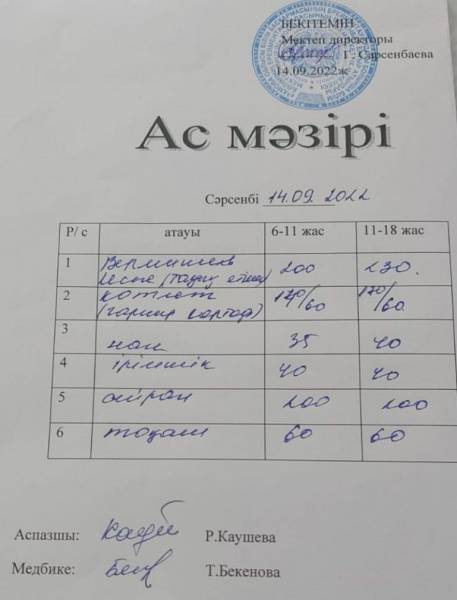 БЕКІТЕМІН
Мектеп директоры
Г. Сарсенбаева
14.09.2022ж
Ас мәзірі
Сәрсенбі 14.09 2022
Р/ с атауы 6-11 жас 11-18 жас
1 Вермишель 200 230.
көже (тауық етімен)
2 котлет 140/60 170/60
(гарнир картоф)
3 нан 35 40
4 ірімшік 40 40
5 айран 200 200
6 тоқаш 60 60
Аспазшы: Р.Каушева
Медбике: Т.Бекенова